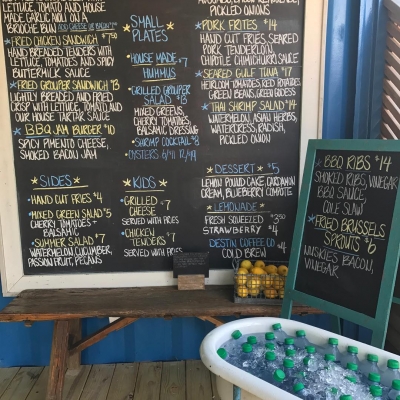 LETTUCE, TOMATO AND HOUSE
MADE GARLIC NOLI ON A
BRIOCHE BUN
*FRIED CHICKEN SANDWICH $7.50
HAND BREADED TENDERS WITH
LETTUCE, TOMATOES AND SPICY
BUTTERMILK SAUCE
*FRIED GROUPER SANDWICH $13
LIGHTLY BREADED AND FRIED
CRISP WITH LETTUCE, TOMATO, AND
OUR HOUSE TARTAR SAUCE
*BBQ JAM BURGER $10
SPICY PIMENTO CHEESE,
SMOKED BACON JAM
*SIDES*
•HAND CUT FRIES $4
•MIXED GREEN SALAD $5
CHERRY TOMATOES +
BALSAMIC
•SUMMER SALAD $7
WATERMELON, CUCUMBER,
PASSION FRUIT, PECANS
*SMALL
PLATES*
•HOUSE MADE $7
HUMMUS
•GRILLED GROUPER
SALAD $13
MIXED GREENS,
CHERRY TOMATOES,
BALSAMIC DRESSING
•SHRIMP COCKTAIL $8
•OYSTERS 6/$11 12/$19
*KIDS*
•GRILLED $7
CHEESE
SERVED WITH FRIES
•CHICKEN
TENDERS $7
SERVED WITH FRIES
PICKLED ONIONS
*PORK FRITES $14
HAND CUT FRIES, SEARED
PORK TENDERLOIN,
CHIPOTLE CHIMICHURRI SAUCE
*SEARED GULF TUNA $17
HEIRLOOM TOMATOES, RED POTATOES,
GREEN BEANS, GREEN GODDESS
*THAI SHRIMP SALAD $14
WATERMELON, ASIAN HERBS,
WATERCRESS, RADISH,
PICKLED ONION
*DESSERT* $5
LEMON POUND CAKE, CARDAMON
CREAM, BLUEBERRY COMPOTE
*LEMONADE*
FRESH SQUEEZED $3.50
STRAWBERRY $4
DESTIN COFFEE CO. $4
COLD BREW
*BBQ RIBS $14
SMOKED RIBS, VINEGAR
BBQ SAUCE,
COLE SLAW
*FRIED BRUSSELS
SPROUTS $6
NUESKIES BACON,
VINEGAR